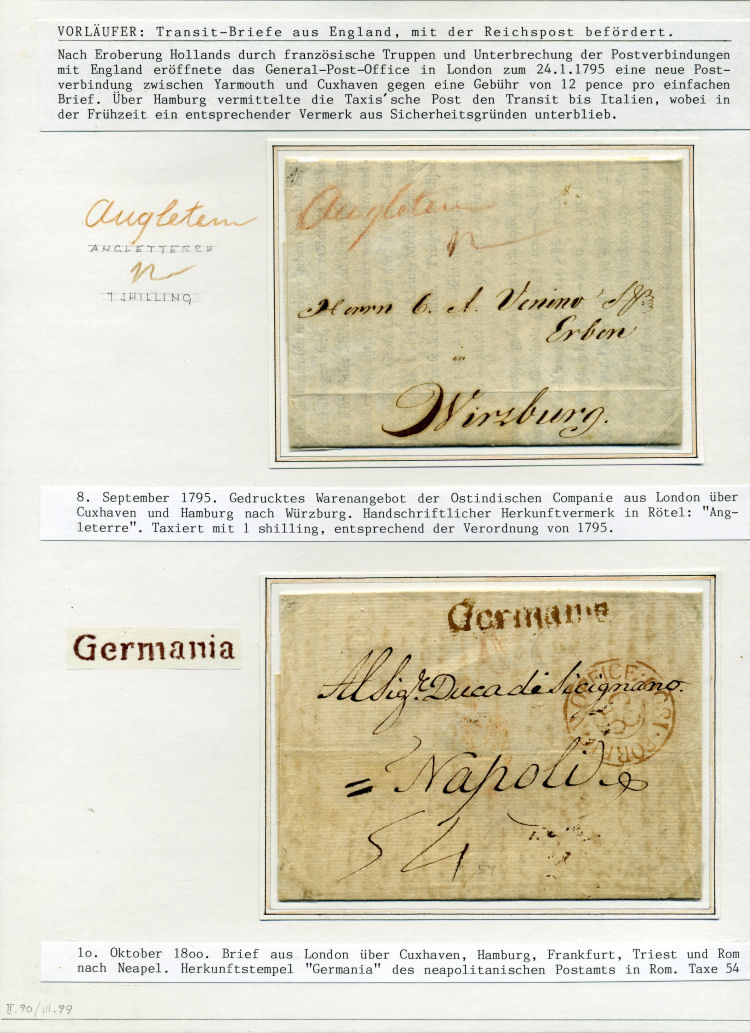 VORLÄUFER: Transit-Briefe aus England, mit der Reichspost befördert.
Nach Eroberung Hollands durch französische Truppen und Unterbrechung der Postverbindungen
mit England eröffnete das General-Post-Office in London zum 24.1.1795 eine neue Post-
verbindung zwischen Yarmouth und Cuxhaven gegen eine Gebühr von 12 pence pro einfachen
Brief. Über Hamburg vermittelte die Taxis´sche Post den Transit bis Italien, wobei in
der Frühzeit ein entsprechender Vermerk aus Sicherheitsgründen unterblieb.
Angleterre
ANGLETTERRE
1 SHILLING
Angleterre
Herrn C. A. Venino
Erben
in
Wirzburg.
8. September 1795. Gedrucktes Warenangebot der Ostindischen Companie aus London über
Cuxhaven und Hamburg nach Würzburg. Handschriftlicher Herkunftvermerk in Rötel: "Ang-
leterre". Taxiert mit 1 shilling, entsprechend der Verordnung von 1795.
Germania
Germania
Al Sigr. Duca di Sicignano.
= Napoli
54
54
1o. Oktober 18oo. Brief aus London über Cuxhaven, Hamburg, Frankfurt, Triest und Rom
nach Neapel. Herkunftstempel "Germania" des neapolitanischen Postamts in Rom. Taxe 54
II.90/III.99